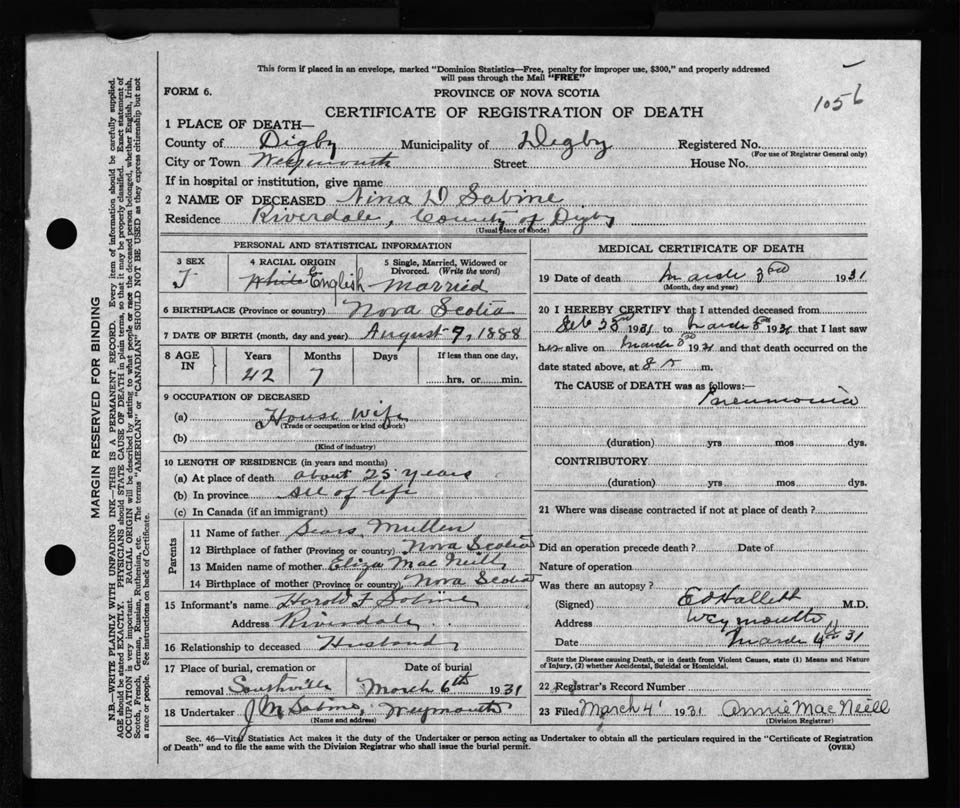 This form if placed in an envelope, marked "Dominion Statistics—Free, penalty for improper use, $300," and properly addressed
will pass through the Mail "FREE"
FORM 6.
PROVINCE OF NOVA SCOTIA
1056
CERTIFICATE OF REGISTRATION OF DEATH
1 PLACE OF DEATH—
County of Digby Municipality of Digby Registered No.
(For use of Registrar General only)
City or Town Weymouth Street House No.
If in hospital or institution, give name
2 NAME OF DECEASED Nina D Sabine
Residence Riverdale, County of Digby
(Usual place of abode)
PERSONAL AND STATISTICAL INFORMATION
3 SEX
F
4 RACIAL ORIGIN
White English
5 Single, Married, Widowed or
Divorced. (Write the word)
Married
6 BIRTHPLACE (Province or country) Nova Scotia
7 DATE OF BIRTH (month, day and year) August 7, 1888
8 AGE
IN
Years
42
Months
7
Days
If less than one day,
hrs. or min.
9 OCCUPATION OF DECEASED
(a) House Wife
(Trade or occupation or kind of work)
(b)
(Kind of industry)
10 LENGTH OF RESIDENCE (in years and months)
(a) At place of death about 25 years
(b) In province all of life
(c) In Canada (if an immigrant)
Parents
11 Name of father Sears Mullen
12 Birthplace of father (Province or country) Nova Scotia
13 Maiden name of mother Eliza Mac Neill
14 Birthplace of mother (Province or country) Nova Scotia
15 Informant's name Harold F Sabine
Address Riverdale
16 Relationship to deceased Husband
17 Place of burial, cremation or
removal Southville
Date of burial
March 6th 1931
18 Undertaker J M Sabine, Weymouth
(Name and address)
MEDICAL CERTIFICATE OF DEATH
19 Date of death March 3rd 1931
(Month, day and year)
20 I HEREBY CERTIFY that I attended deceased from
Feb 25th 1931 to March 3rd 1931 that I last saw
her alive on March 3rd 1931 and that death occurred on the
date stated above, at 8 m.
The CAUSE OF DEATH was as follows:
Pneumonia
(duration) yrs mos dys.
CONTRIBUTORY
(duration) yrs. mos. dys.
21 Where was disease contracted if not at place of death?
Did an operation precede death? Date of
Nature of operation
Was there an autopsy?
(Signed) E D Hallett M.D.
Address Weymouth
Date March 4th 31
State the Disease causing Death, or in death from Violent Causes, state (1) Means and Nature
of Injury, (2) whether Accidental, Suicidal or Homicidal.
22 Registrar's Record Number
23 Filed March 4 1931 Annie MacNeill
(Division Registrar)
Sec. 46—Vital Statistics Act makes it the duty of the Undertaker or person acting as Undertaker to obtain all the particulars required in the "Certificate of Registration
of Death" and to file the same with the Division Registrar who shall issue the burial permit.
(OVER)
MARGIN RESERVED FOR BINDING
N.B.—WRITE PLAINLY WITH UNFADING INK—THIS IS A PERMANENT RECORD. Every item of information should be carefully supplied.
AGE should be stated EXACTLY. PHYSICIANS should STATE CAUSE OF DEATH in plain terms, so that it may be properly classified. Exact statement of
OCCUPATION is very important. RACIAL ORIGIN will be described by stating to what people or race the deceased person belonged, whether English, Irish,
Scotch, French, German, Russian, Ruthenian, etc. The terms "AMERICAN" or "CANADIAN" SHOULD NOT BE USED as they express citizenship but not
a race or people. See instructions on back of Certificate.